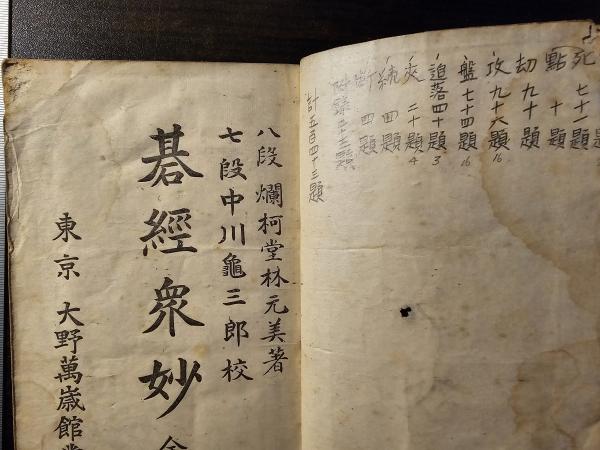 死 七十一題
點 十題
劫 九十題
攻 九十六題 16
盤 七十四題 16
追落 四十題 3
夾 二十題 4
続 四題
断 四題
附録 三十三題
計五百四十三題
八段爛柯堂林元美著
七段中川龜三郎校
碁經衆妙 全
東京 大野萬歳館